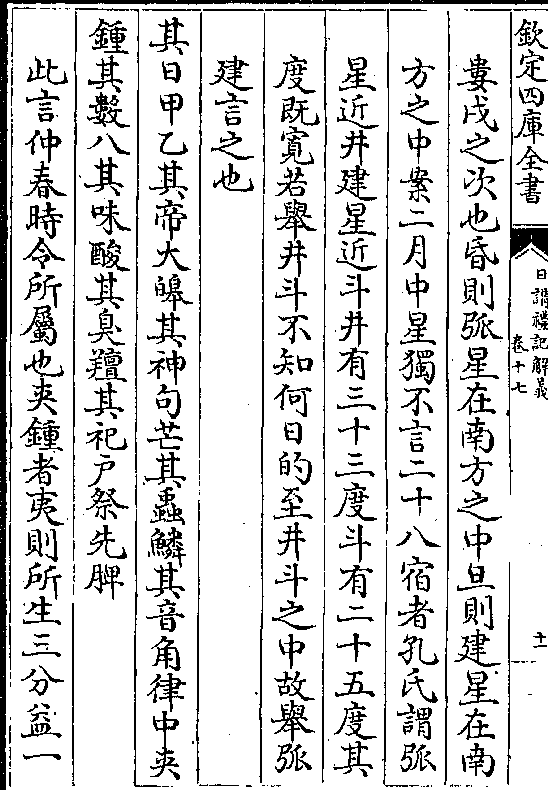 欽定四庫全書
日講禮記解義
卷十七
十一
婁戌之次也昏則弧星在南方之中旦則建星在南
方之中案二月中星獨不言二十八宿者孔氏謂弧
星近井建星近斗井有三十三度斗有二十五度其
度既寬若舉井斗不知何日的至井斗之中故舉弧
建言之也
其日甲乙其帝大皞其神句芒其蟲鱗其音角律中夾
鍾其數八其味酸其臭羶其祀户祭先脾
此言仲春時令所屬也夾鍾者夷則所生三分益一